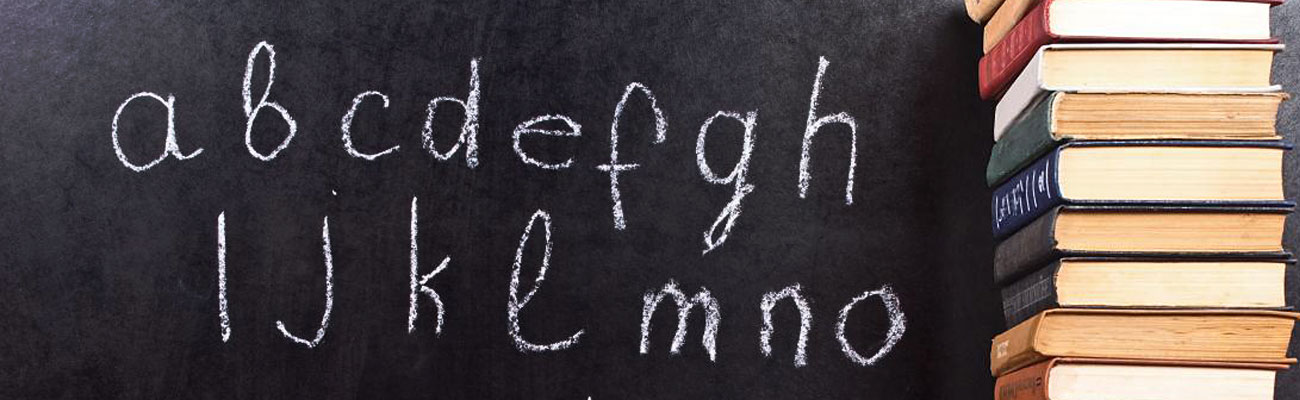 a b c d e f g h
l j k l m n o